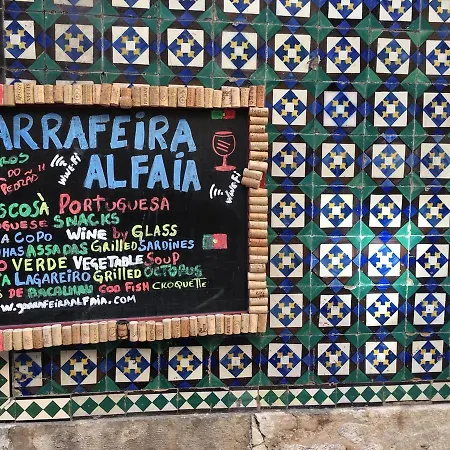 ARRAFEIRA
ALFAÍA
PEDRÃO"
Wine Fi
Wine Fi
PORTUGUESA
SNACKS
COPO WINE by GLASS
ASSADAS GRilled SARDINES
VERDE VEGETABLE SOUP
LAGAREIRO GRilled OCTOPUS
S DE BACALHAU COD FISH CROQUETTE
W.GARRAFEIRAALFAIA.COM